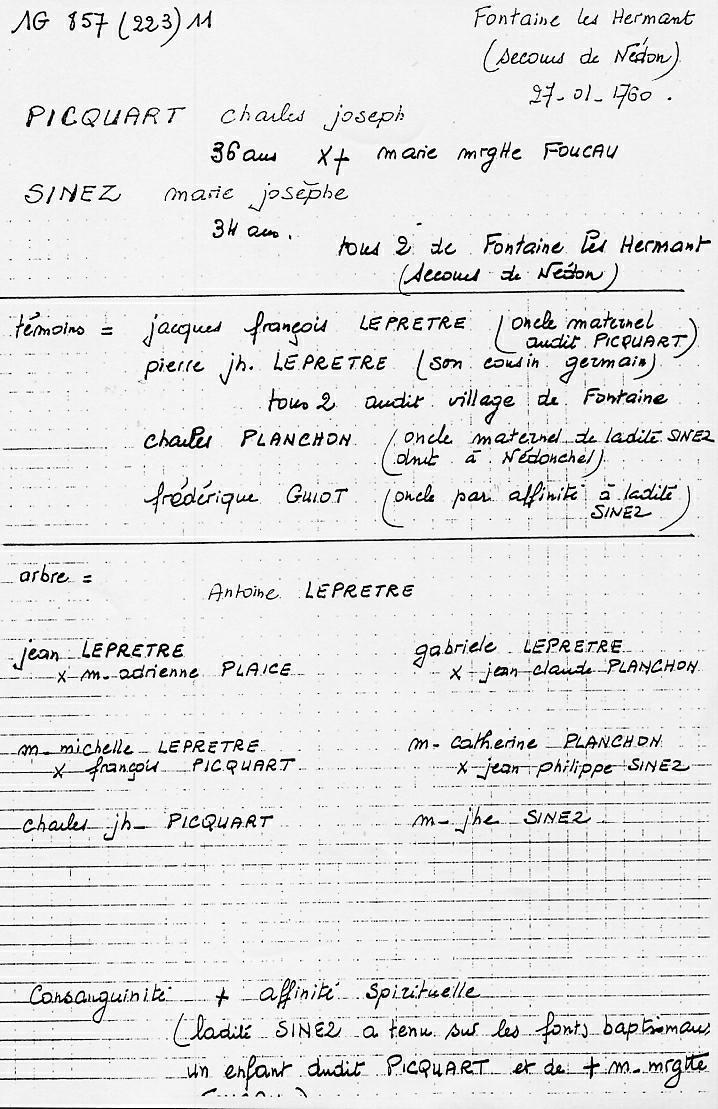 1G 857 (223) 11
Fontaine les Hermant
(secours de Nédon)
27-01-1760.
PICQUART charles joseph
36 ans x+ marie mrgtte FOUCAU
SINEZ marie josèphe
34 ans.
tous 2 de Fontaine les Hermant
(secours de Nédon)
témoins = jacques françois LEPRETRE (oncle maternel
audit PICQUART)
pierre jh. LEPRETRE (son cousin germain)
tous 2 audit village de Fontaine
charles PLANCHON (oncle maternel de ladite SINEZ
dmt à Nédonchel)
frédérique GUIOT (oncle par affinité à ladite
SINEZ)
arbre =
Antoine LEPRETRE
jean LEPRETRE
x m. adrienne PLAICE
gabriele LEPRETRE
x jean claude PLANCHON
m. michelle LEPRETRE
x françois PICQUART
m. catherine PLANCHON
x jean philippe SINEZ
charles jh PICQUART
m. jhe SINEZ
Consanguinité + affinité spirituelle
(ladite SINEZ a tenu sur les fonts baptismaux
un enfant dudit PICQUART et de + m. mrgtte